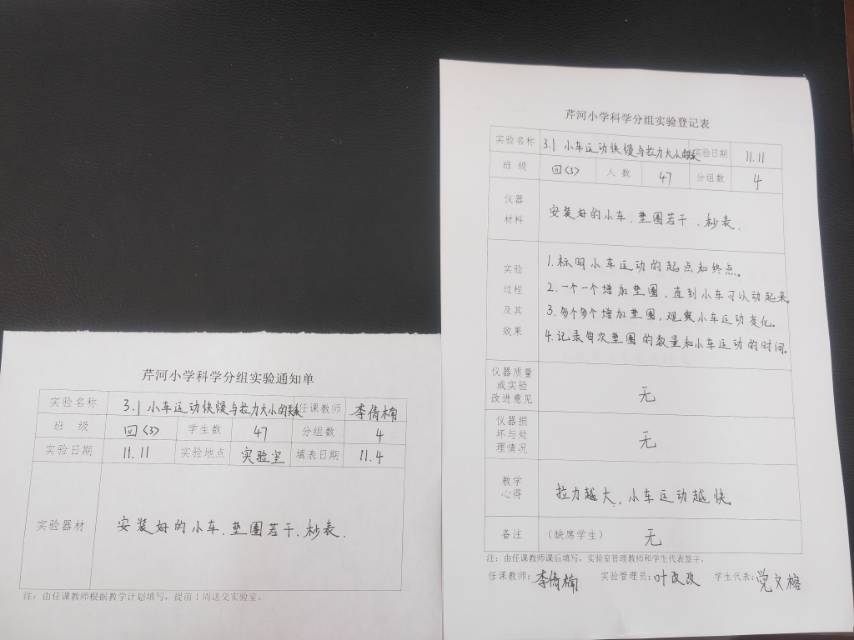 芹河小学科学分组实验通知单
实验名称 3.1 小车运动快慢与拉力大小的关系 任课教师 李倩楠
班 级 四(3) 学生数 47 分组数 4
实验日期 11.11 实验地点 实验室 填表日期 11.4
实验器材 安装好的小车、垫圈若干、秒表.
注：由任课教师根据教学计划填写，提前1周送交实验室。
芹河小学科学分组实验登记表
实验名称 3.1 小车运动快慢与拉力大小的关系 实验日期 11.11
班 级 四(3) 人 数 47 分组数 4
仪器
材料
安装好的小车、垫圈若干、秒表.
实验
过程
及其
效果
1.标明小车运动的起点和终点。
2.一个一个增加垫圈，直到小车可以动起来.
3.多个多个增加垫圈，观察小车运动变化。
4.记录每次垫圈的数量和小车运动的时间。
仪器质量
或实验
改进意见
无
仪器损
坏与处
理情况
无
教学
心得
拉力越大、小车运动越快。
备注 (缺席学生) 无
注：由任课教师课后填写，实验室管理教师和学生代表签字。
任课教师：李倩楠 实验管理员：叶改改 学生代表：党文榕